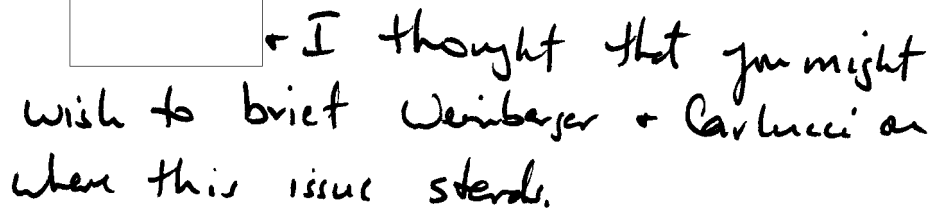 + I thought that you might
wish to brief Weinberger + Carlucci on
where this issue stands.